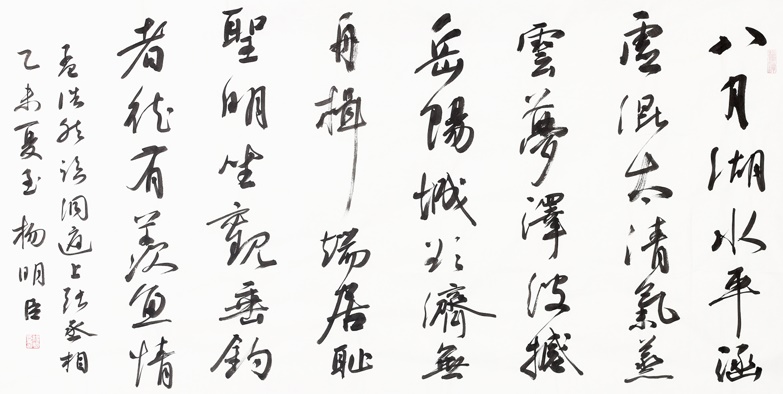 八月湖水平涵
虛混太清氣蒸
雲夢澤波撼
岳陽城欲濟無
舟楫端居耻
聖明坐觀垂釣
者徒有羨魚情
孟浩然詩洞庭上張丞相
乙未夏至 楊明臣